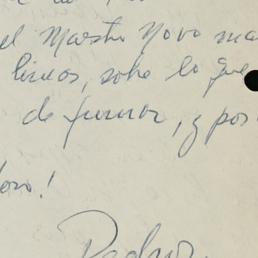 el Maestro Novo ma
lineas, sobre lo que
de furor, y pos
oro!
Pedro